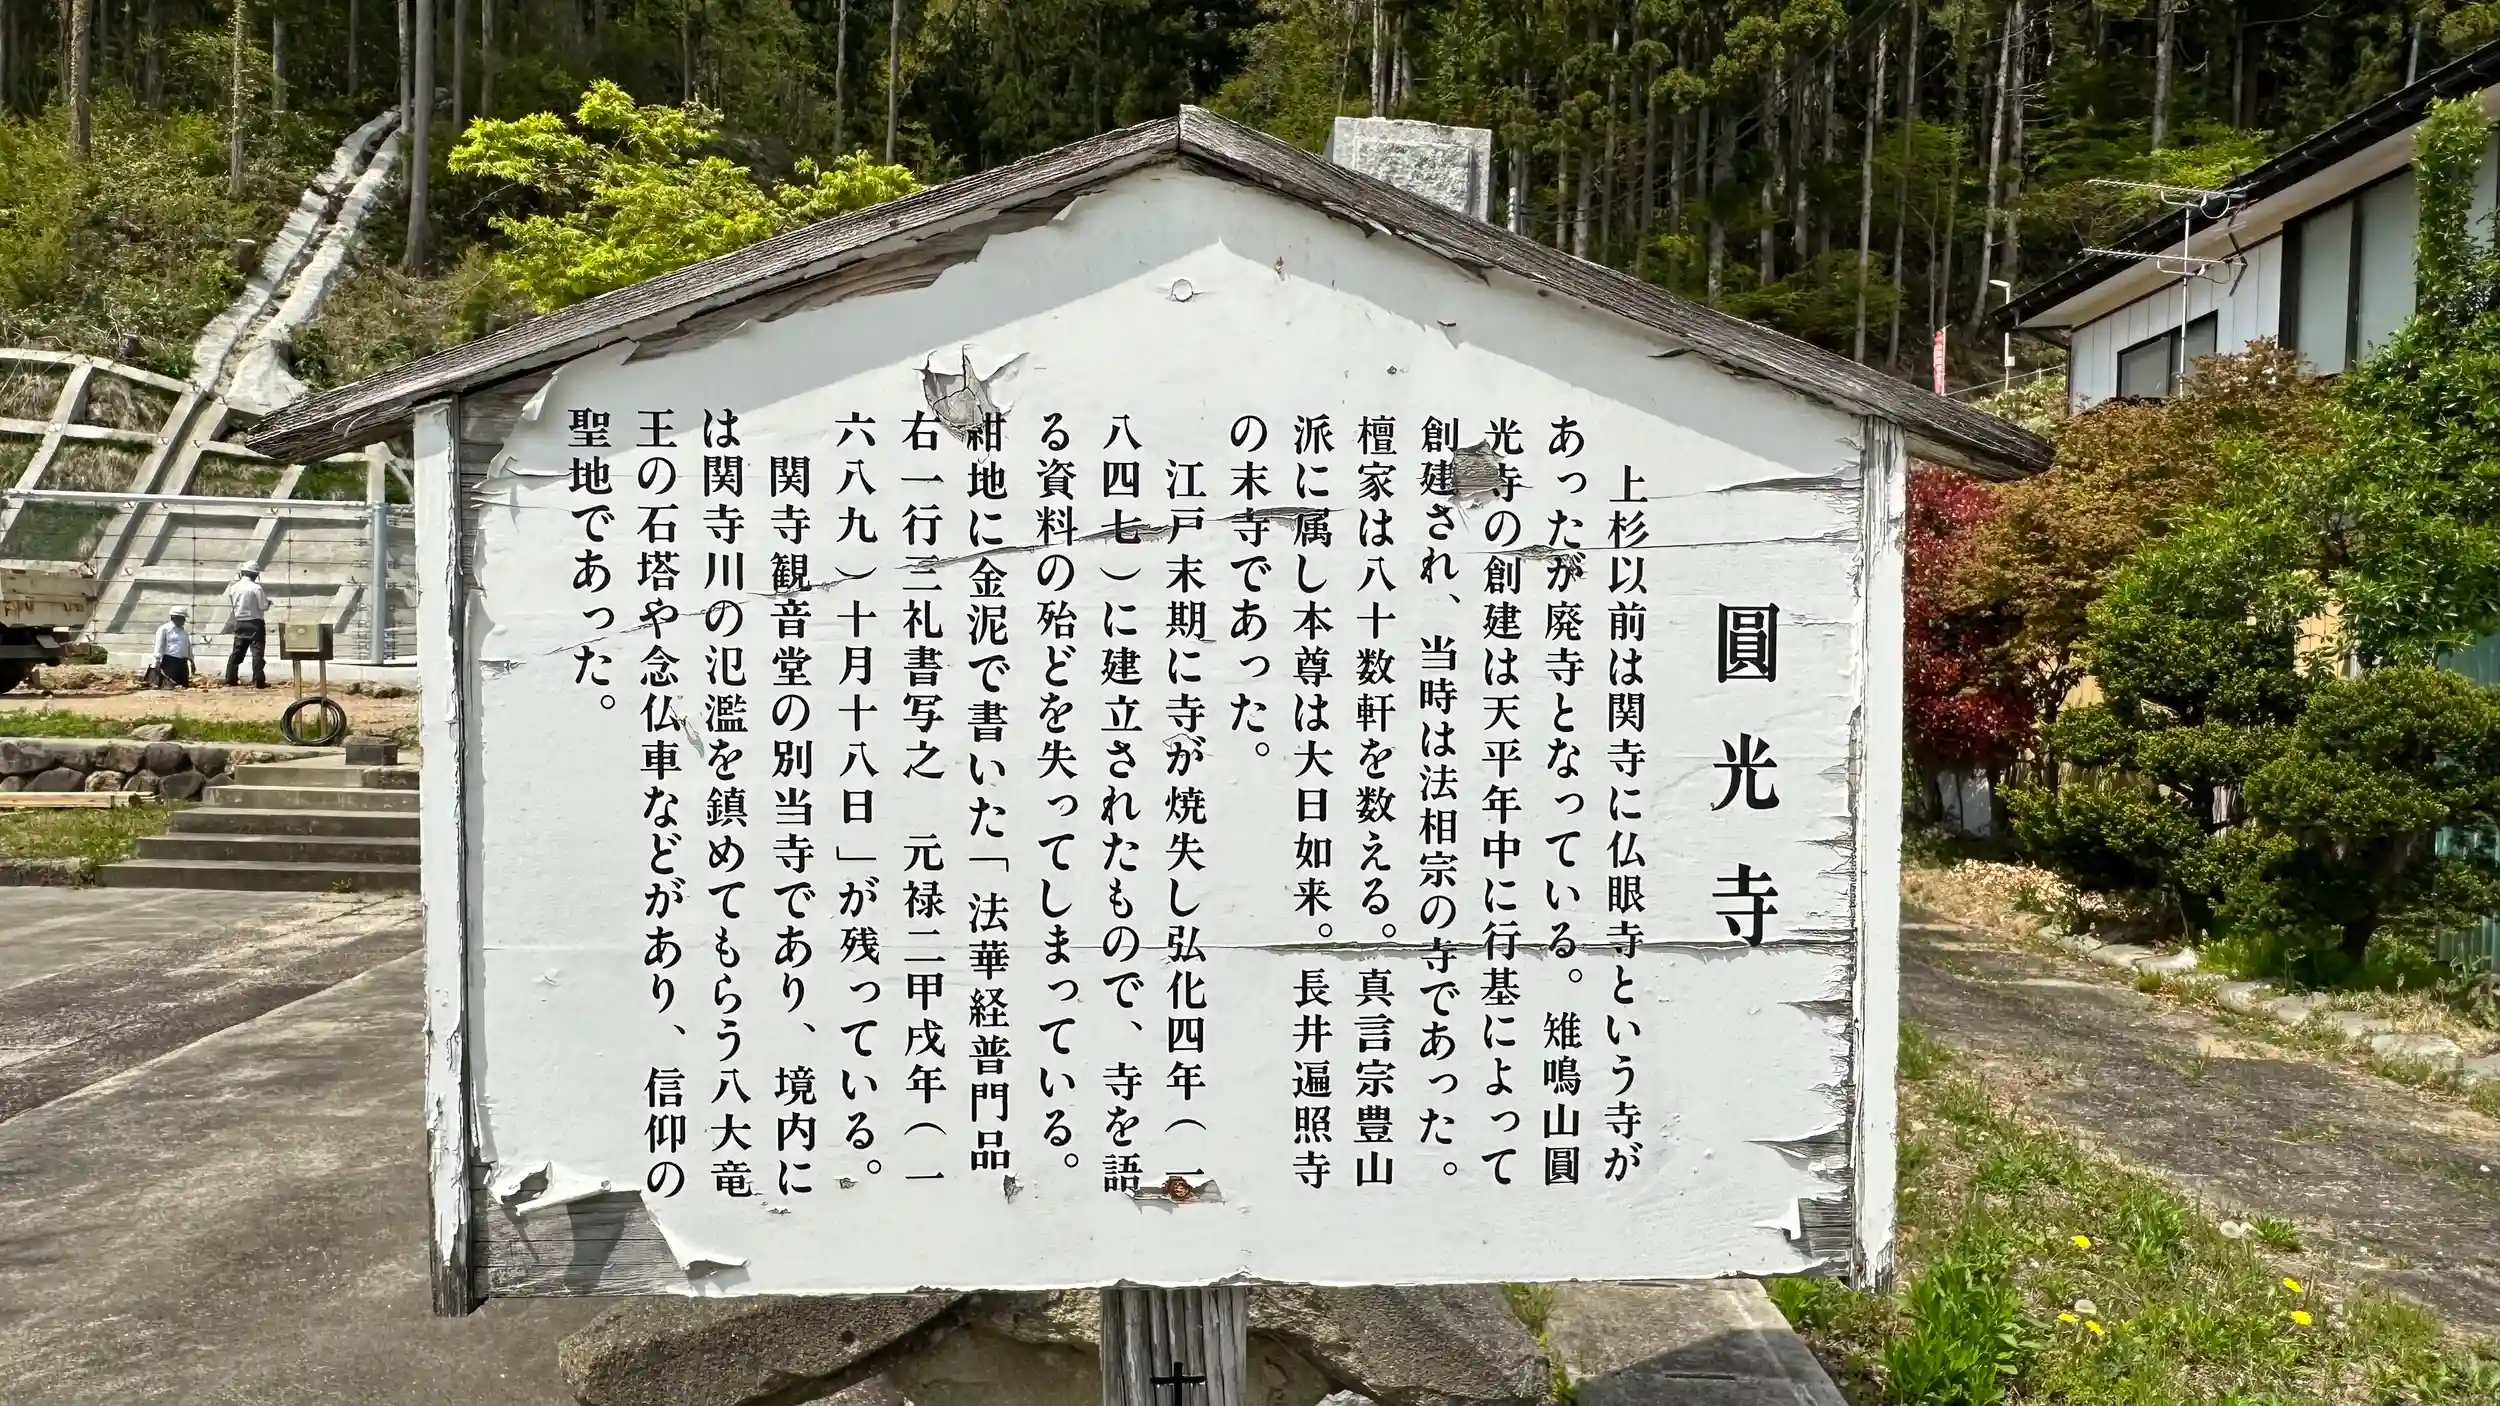 圓光寺
上杉以前は関寺に仏眼寺という寺が
あったが廃寺となっている。雉鳴山圓
光寺の創建は天平年中に行基によって
創建され、当時は法相宗の寺であった。
檀家は八十数軒を数える。真言宗豊山
派に属し本尊は大日如来。長井遍照寺
の末寺であった。
江戸末期に寺が焼失し弘化四年（一
八四七）に建立されたもので、寺を語
る資料の殆どを失ってしまっている。
紺地に金泥で書いた「法華経普門品
右一行三礼書写之　元禄二甲戌年（一
六八九）十月十八日」が残っている。
関寺観音堂の別当寺であり、境内に
は関寺川の氾濫を鎮めてもらう八大竜
王の石塔や念仏車などがあり、信仰の
聖地であった。